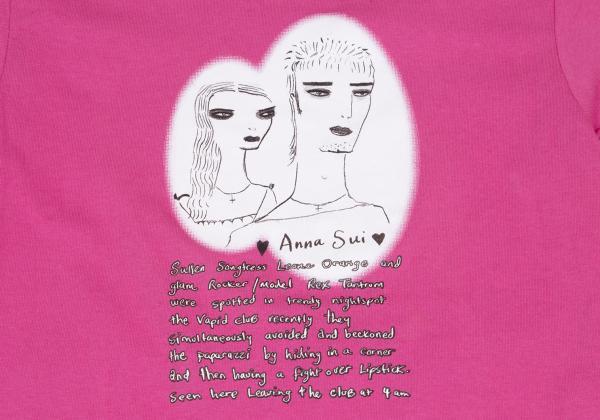 ♥ Anna Sui ♥
Sullen Songtress Leone Orange and
glam Rocker/model Rex Tantrum
were spotted in trendy nightspot
the Vapid club recently they
simultaneously avoided and beckoned
the paparazzi by hiding in a corner
and then having a fight over Lipstick.
seen here Leaving the club at 4 am